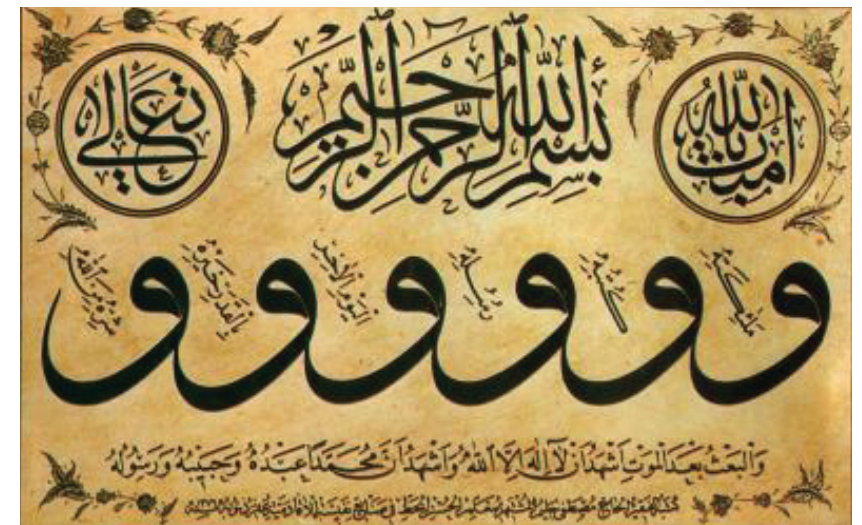 بِسْمِ اللهِ الرَّحْمٰنِ الرَّحِيمِ
اٰمَنْتُ بِاللهِ
تَعَالٰى
و مَلٰئِكَتِهِ و كُتُبِهِ و رُسُلِهِ و الْيَوْمِ الْاٰخِرِ و بِالْقَدَرِ خَيْرِهِ و شَرِّهِ مِنَ اللهِ
وَالْبَعْثُ بَعْدَ الْمَوْتِ اَشْهَدُ اَنْ لَا اِلٰهَ اِلَّا اللهُ وَاَشْهَدُ اَنَّ مُحَمَّدًا عَبْدُهُ وَحَبِيبُهُ وَرَسُولُهُ